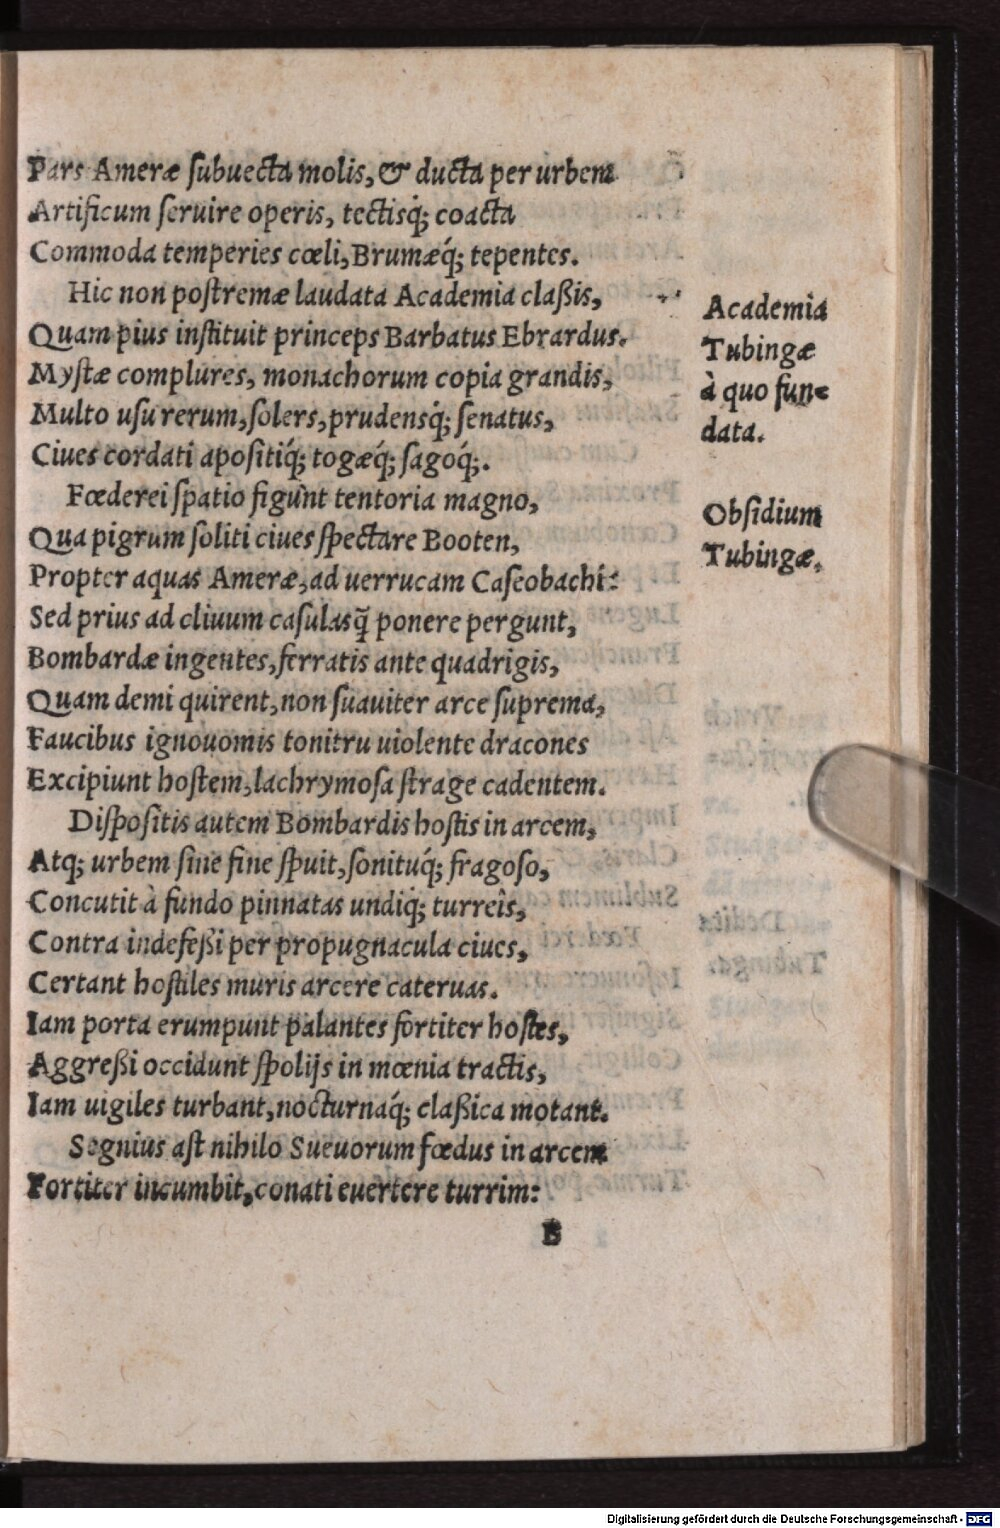 Pars Ameræ ſubuecta molis, & ducta per urbem
Artificum ſeruire operis, tectisq́; coacta
Commoda temperies cœli, Brumæq́; tepentes.
Hic non poſtremæ laudata Academia claßis,
Quam pius inſtituit princeps Barbatus Ebrardus.
Myſtæ complures, monachorum copia grandis,
Multo uſu rerum, ſolers, prudensq́; ſenatus,
Ciues cordati apoſitiq́; togæq́; ſagoq́;.
Fœderei ſpatio figunt tentoria magno,
Qua pigrum ſoliti ciues ſpectare Booten,
Propter aquas Ameræ, ad uerrucam Caſeobachi:
Sed prius ad cliuum caſulasq̃ ponere pergunt,
Bombardæ ingentes, ferratis ante quadrigis,
Quam demi quirent, non ſuauiter arce ſuprema,
Faucibus ignouomis tonitru uiolente dracones
Excipiunt hoſtem, lachrymoſa ſtrage cadentem.
Diſpoſitis autem Bombardis hoſtis in arcem,
Atq; urbem ſine fine ſpuit, ſonituq́; fragoſo,
Concutit à fundo pinnatas undiq; turreîs,
Contra indefeßi per propugnacula ciues,
Certant hoſtiles muris arcere cateruas.
Iam porta erumpunt palantes fortiter hoſtes,
Aggreßi occidunt ſpolijs in mœnia tractis,
Iam uigiles turbant, nocturnaq́; claßica motant.
Segnius aſt nihilo Sueuorum fœdus in arcem
Fortiter incumbit, conati euertere turrim:
B
Academia
Tubingæ
à quo fun=
data.
Obſidium
Tubingæ.
Digitalisierung gefördert durch die Deutsche Forschungsgemeinschaft - DFG